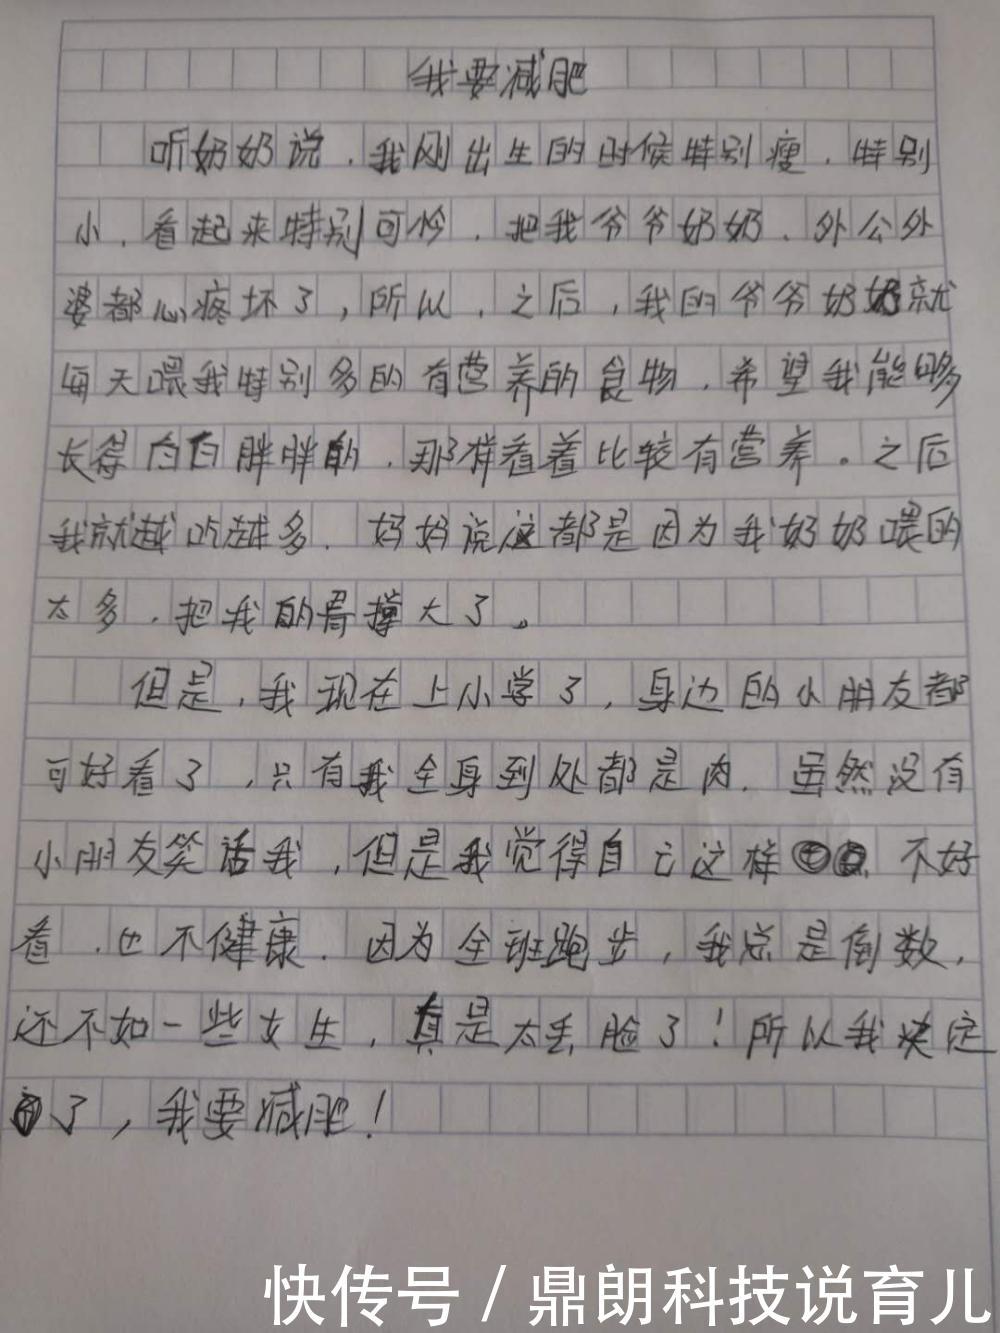 我要减肥
听奶奶说，我刚出生的时候特别瘦，特别
小，看起来特别可怜，把我爷爷奶奶、外公外
婆都心疼坏了，所以，之后，我的爷爷奶奶就
每天喂我特别多的有营养的食物，希望我能够
长得白白胖胖的，那样看着比较有营养。之后
我就越吃越多，妈妈说这都是因为我奶奶喂的
太多，把我的胃撑大了。
但是，我现在上小学了，身边的小朋友都
可好看了，只有我全身到处都是肉，虽然没有
小朋友笑话我，但是我觉得自己这样不好
看，也不健康，因为全班跑步，我总是倒数，
还不如一些女生，真是太丢脸了！所以我决定
了，我要减肥！
快传号/鼎朗科技说育儿